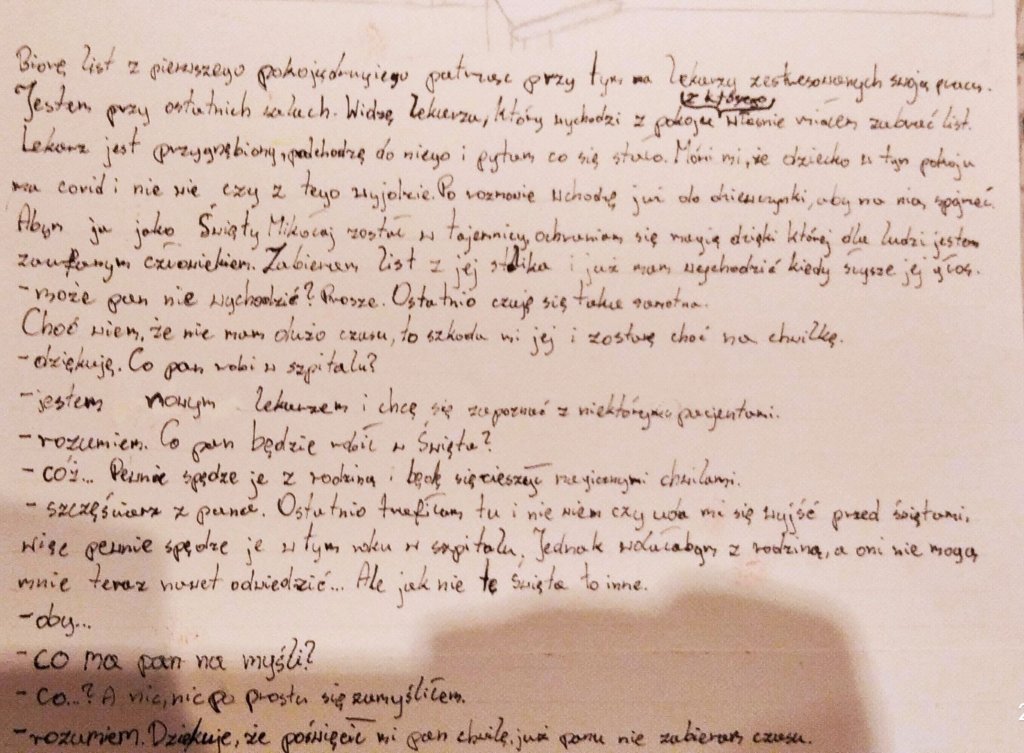 Biorę list z pierwszego pokoju, drugiego patrząc przy tym na lekarzy zestresowanych swoją pracą.
Jestem przy ostatnich salach. Widzę lekarza, który wychodzi z pokoju (z którego) właśnie miałem zabrać list.
Lekarz jest przygnębiony, podchodzę do niego i pytam co się stało. Mówi mi, że dziecko w tym pokoju
ma covid i nie wie czy z tego wyjdzie. Po rozmowie wchodzę już do dziewczynki, aby na nią spojrzeć.
Abym ja jako Święty Mikołaj został w tajemnicy, ochraniam się magią dzięki której dla ludzi jestem
zaufanym człowiekiem. Zabieram list z jej stolika i już mam wychodzić kiedy słyszę jej głos.
- może pan nie wychodzić? Prosze. Ostatnio czuję się taka samotna.
Choć wiem, że nie mam dużo czasu, to szkoda mi jej i zostaję choć na chwilkę.
- dziękuję. Co pan robi w szpitalu?
- jestem nowym lekarzem i chcę się zapoznać z niektórymi pacjentami.
- rozumiem. Co pan będzie robić w Święta?
- cóż... Pewnie spędzę je z rodziną i będę się cieszyć magicznymi chwilami.
- szczęściarz z pana. Ostatnio trafiłam tu i nie wiem czy uda mi się wyjść przed świętami,
więc pewnie spędzę je w tym roku w szpitalu. Jednak wolałabym z rodziną, a oni nie mogą
mnie teraz nawet odwiedzić... Ale jak nie te święta to inne.
- oby...
- co ma pan na myśli?
- co...? A nic, nic po prostu się zamyśliłem.
- rozumiem. Dziękuje, że poświęcił mi pan chwilę, już panu nie zabieram czasu.